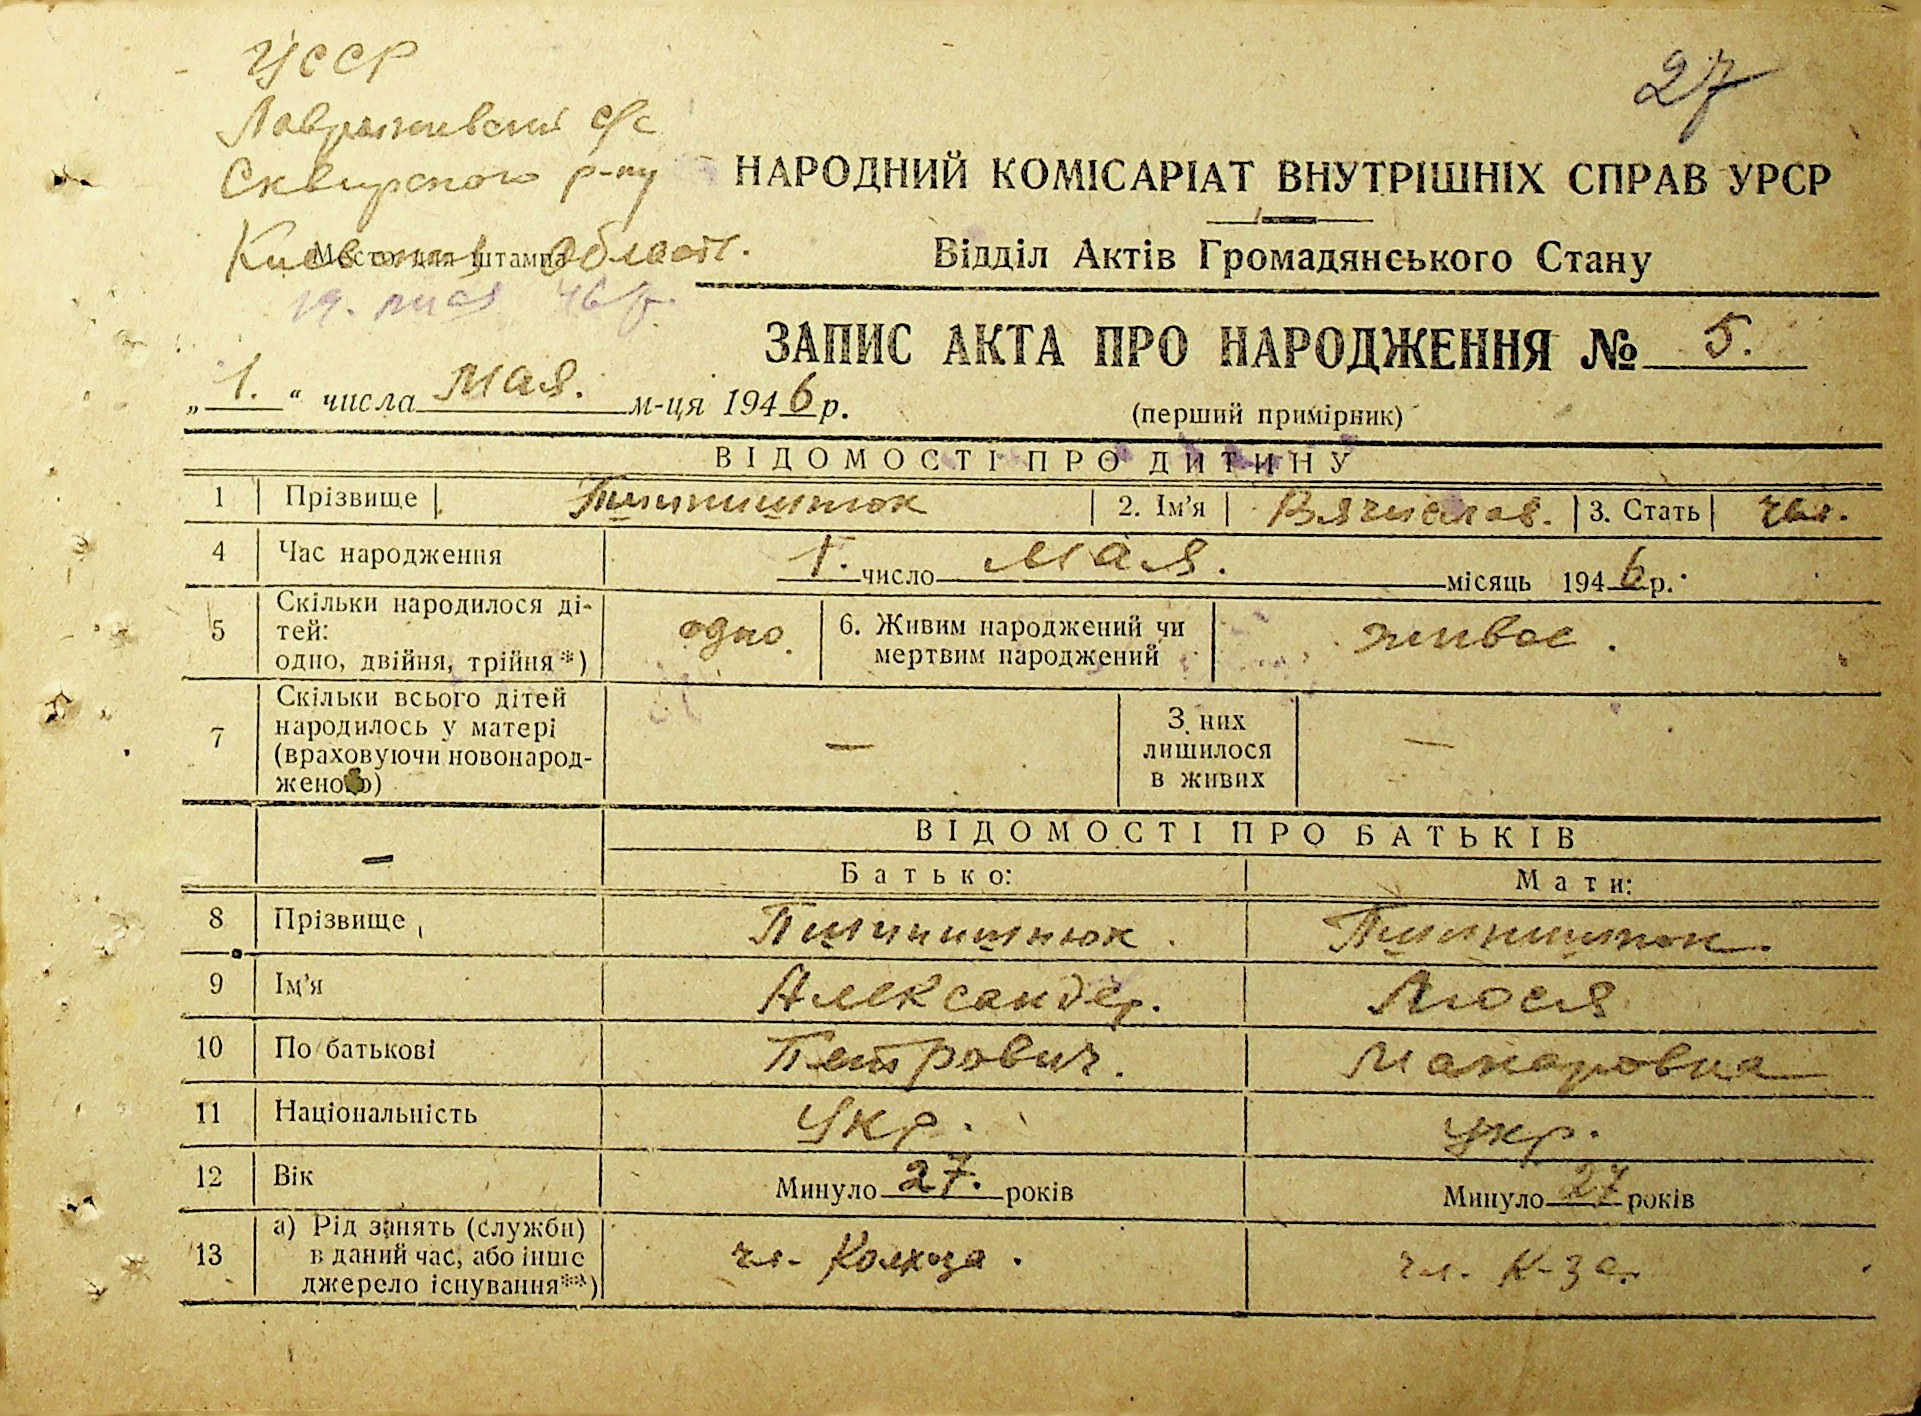 УССР
27
с/с
Сквирского р-ну
Киевской Област.
Место для штампа
19. 46 р.
НАРОДНИЙ КОМІСАРІАТ ВНУТРІШНІХ СПРАВ УРСР
Відділ Актів Громадянського Стану
ЗАПИС АКТА ПРО НАРОДЖЕННЯ № 5.
„1.“ числа мая. м-ця 1946 р.
(перший примірник)
ВІДОМОСТІ ПРО ДИТИНУ
1 Прізвище 2. Ім'я Вячислав. 3. Стать чол.
4 Час народження 1. число мая. місяць 1946 р.
5 Скільки народилося ді-
тей:
одно, двійня, трійня*) одно. 6. Живим народжений чи
мертвим народжений живое.
7 Скільки всього дітей
народилось у матері
(враховуючи новонарод-
женого) — З них
лишилося
в живих —
—
ВІДОМОСТІ ПРО БАТЬКІВ
Батько: Мати:
8 Прізвище
9 Ім'я Александер. Люся
10 По батькові Петрович. Макаровна
11 Національність Укр. укр.
12 Вік Минуло 27. років Минуло 27 років
13 а) Рід занять (служби)
в даний час, або інше
джерело існування**) чл. Колхоза. чл. К-за.